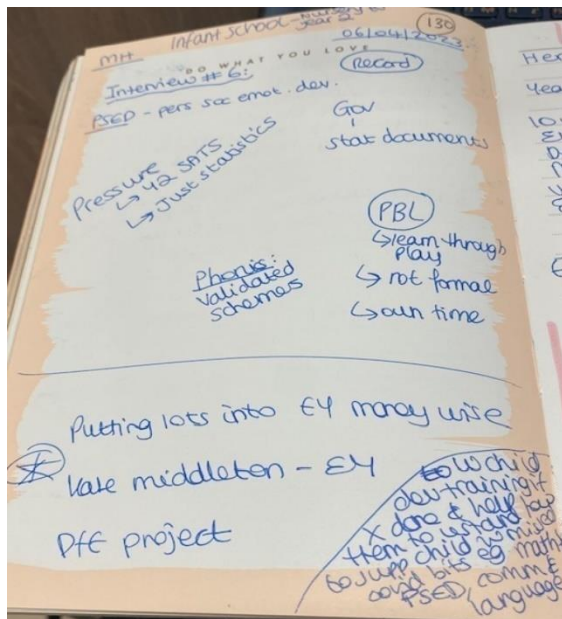 130
MH Infant School - Nursery to
year 2
06/04/2023
DO WHAT YOU LOVE
Interview #6:
Record
PSED - pers soc emot. dev.
Gov
stat documents
Pressure
↳ Y2 SATS
↳ Just statistics
PBL
↳ learn through
play
↳ not formal
↳ own time
Phonics:
validated
schemes
Putting lots into EY money wise
Kate middleton - EY
DfE project
child
dev training if
x done & help
them to
to supp child
covid bits eg maths
PSED, comm &
language
Her
yea